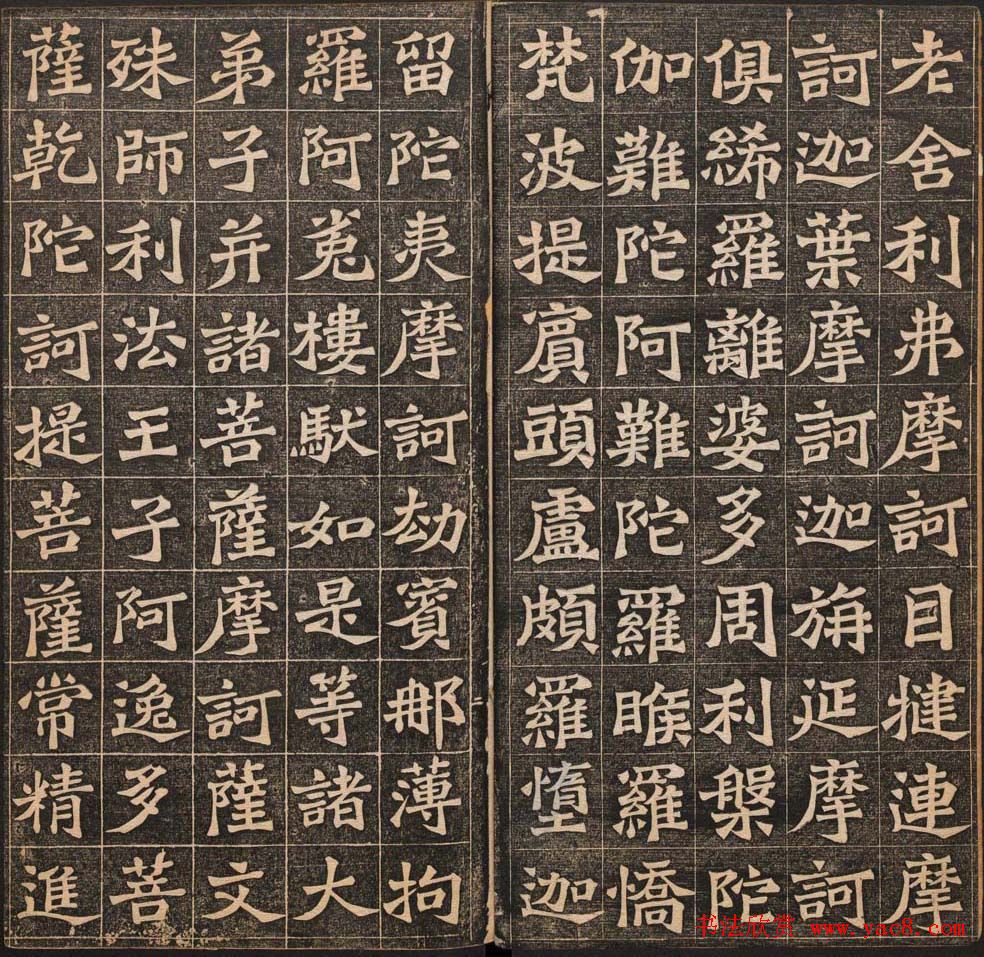 老舍利弗摩訶目揵連摩
訶迦葉摩訶迦旃延摩訶
俱絺羅離婆多周利槃陀
伽難陀阿難陀羅睺羅憍
梵波提賔頭盧頗羅墮迦
留陀夷摩訶劫賓那薄拘
羅阿㝹樓馱如是等諸大
弟子并諸菩薩摩訶薩文
殊師利法王子阿逸多菩
薩乾陀訶提菩薩常精進
书法欣赏 www.yac8.com